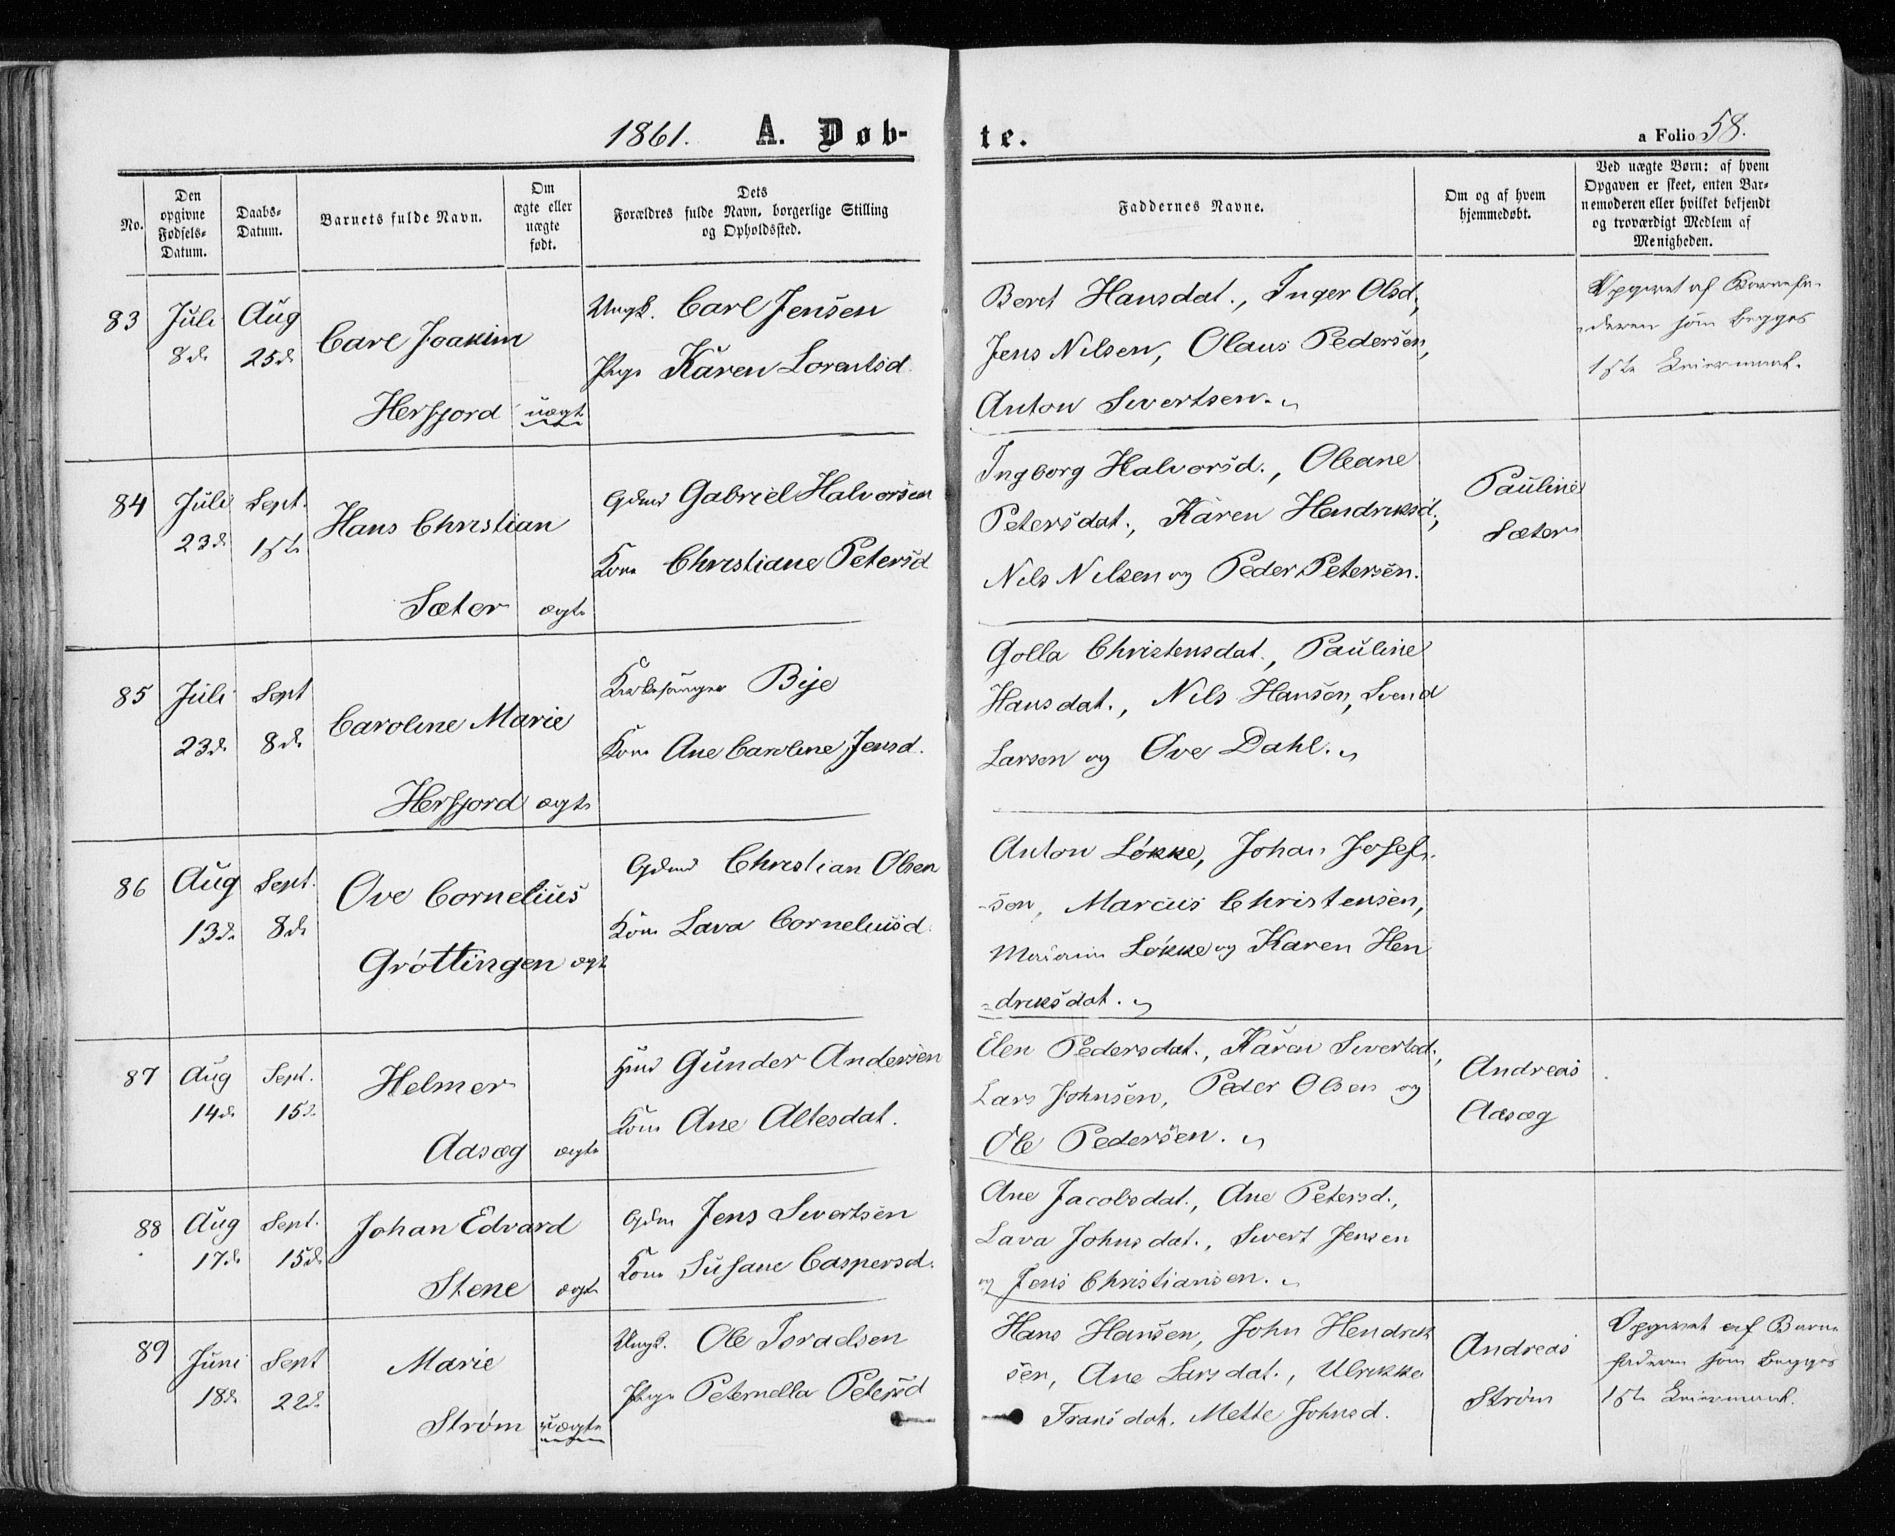 1861. A. Døb-
te. a Folio 58.
No.
Den opgivne Fødsels-Datum.
Daabs-Datum.
Barnets fulde Navn.
Om ægte eller uægte født.
Dets Forældres fulde Navn, borgerlige Stilling og Opholdssted.
Faddernes Navne.
Om og af hvem hjemmedøbt.
Ved uægte Børn: af hvem Opgaven er skeet, enten Barnemoderen eller hvilket bekjendt og troværdigt Medlem af Menigheden.
83 Juli 8de Aug 25de
Carl Joakim
Herfjord uægte
Ungk. Carl Jensen
Pige Karen Lorentsd.
Beret Hansdat., Inger Olsd.,
Jens Nilsen, Olaus Pedersen,
Anton Sivertsen.
Opgivet af Barnefa-
deren som begges
1ste Leiermaal.
84 Juli 23de Sept. 1ste
Hans Christian
Sæter ægte
Gdmd Gabriel Halvorsen
Kone Christiane Petersd
Ingborg Halvorsd., Oleane
Petersdat., Karen Hendriksd.,
Nils Nilsen og Peder Petersen.
Pauline
Sæter
85 Juli 23de Sept 8de
Caroline Marie
Herfjord ægte
Kirkesanger Bye
Kone Ane Caroline Jensd.
Golla Christensdat., Pauline
Hansdat., Nils Hansen, Svend
Larsen og Ove Dahl.
86 Aug 13de Sept. 8de
Ove Cornelius
Grøttingen ægte
Gdmd Christian Olsen
Kone Lava Corneliusd.
Anton Løkke, Johan Josef-
-sen, Marcus Christensen,
Løkke og Karen Hen
-driksdat.
87 Aug 14de Sept. 15de
Helmer
Aasæg ægte
Hmd Gunder Andersen
Kone Ane Altesdat.
Elen Pedersdat., Karen Sivertsd.,
Lars Johnsen, Peder Olsen og
Ole Pedersen.
Andreas
Aasæg
88 Aug 17de Sept. 15de
Johan Edvard
Stene ægte
Gdm Jens Sivertsen
Kone Susane Caspersd.
Ane Jacobsdat., Ane Petersd.,
Lava Johnsdat., Sivert Jensen
og Jens Christiansen.
89 Juni 18de Sept 22de
Marie
Strøm uægte
Ungk. Ole Israelsen
Pige Peternella Petersd
Hans Hansen, John Hendrik
sen, Ane Larsdat., Ulrikke
Fransdat. Mette Johnsd.
Andreas
Strøm
Opgivet af Barne
faderen som begges
1ste Leiermaal.